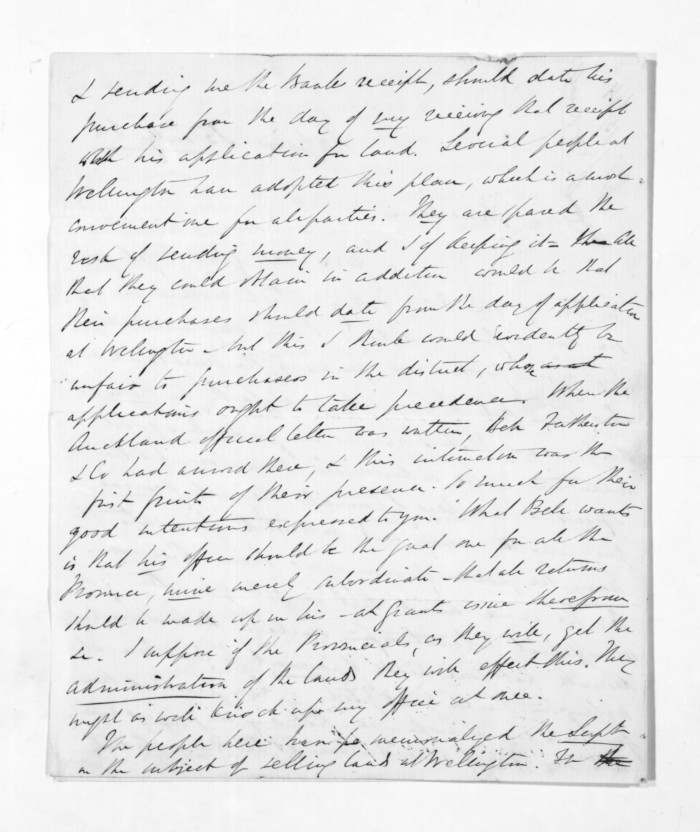 & sending me the Bank receipt, should date his
purchase from the day of my receiving that receipt
with his application for land. Several people at
Wellington have adopted this plan, which is a most
convenient one for all parties. They are spared the
risk of sending money, and I of keeping it - the All
that they could obtain in addition would be that
their purchases should date from the day of application
at Wellington - but this I think would evidently be
unfair to purchasers in the district, whose
applications ought to take precedence. When the
Auckland official letter was written, Bell Featherston
& Co had arrived there, & this intimation was the
first fruits of their presence. So much for their
good intentions expressed to you. What Bell wants
is that his office should be the great one for all the
Province, mine merely subordinate - that all returns
should be made up in his - all Grants issue therefrom
&c. I suppose if the Provincials, as they will, get the
administration of the lands they will effect this. They
might as well knock up my office at once.
The people here have memorialized the Supt
on the subject of selling lands at Wellington. In the